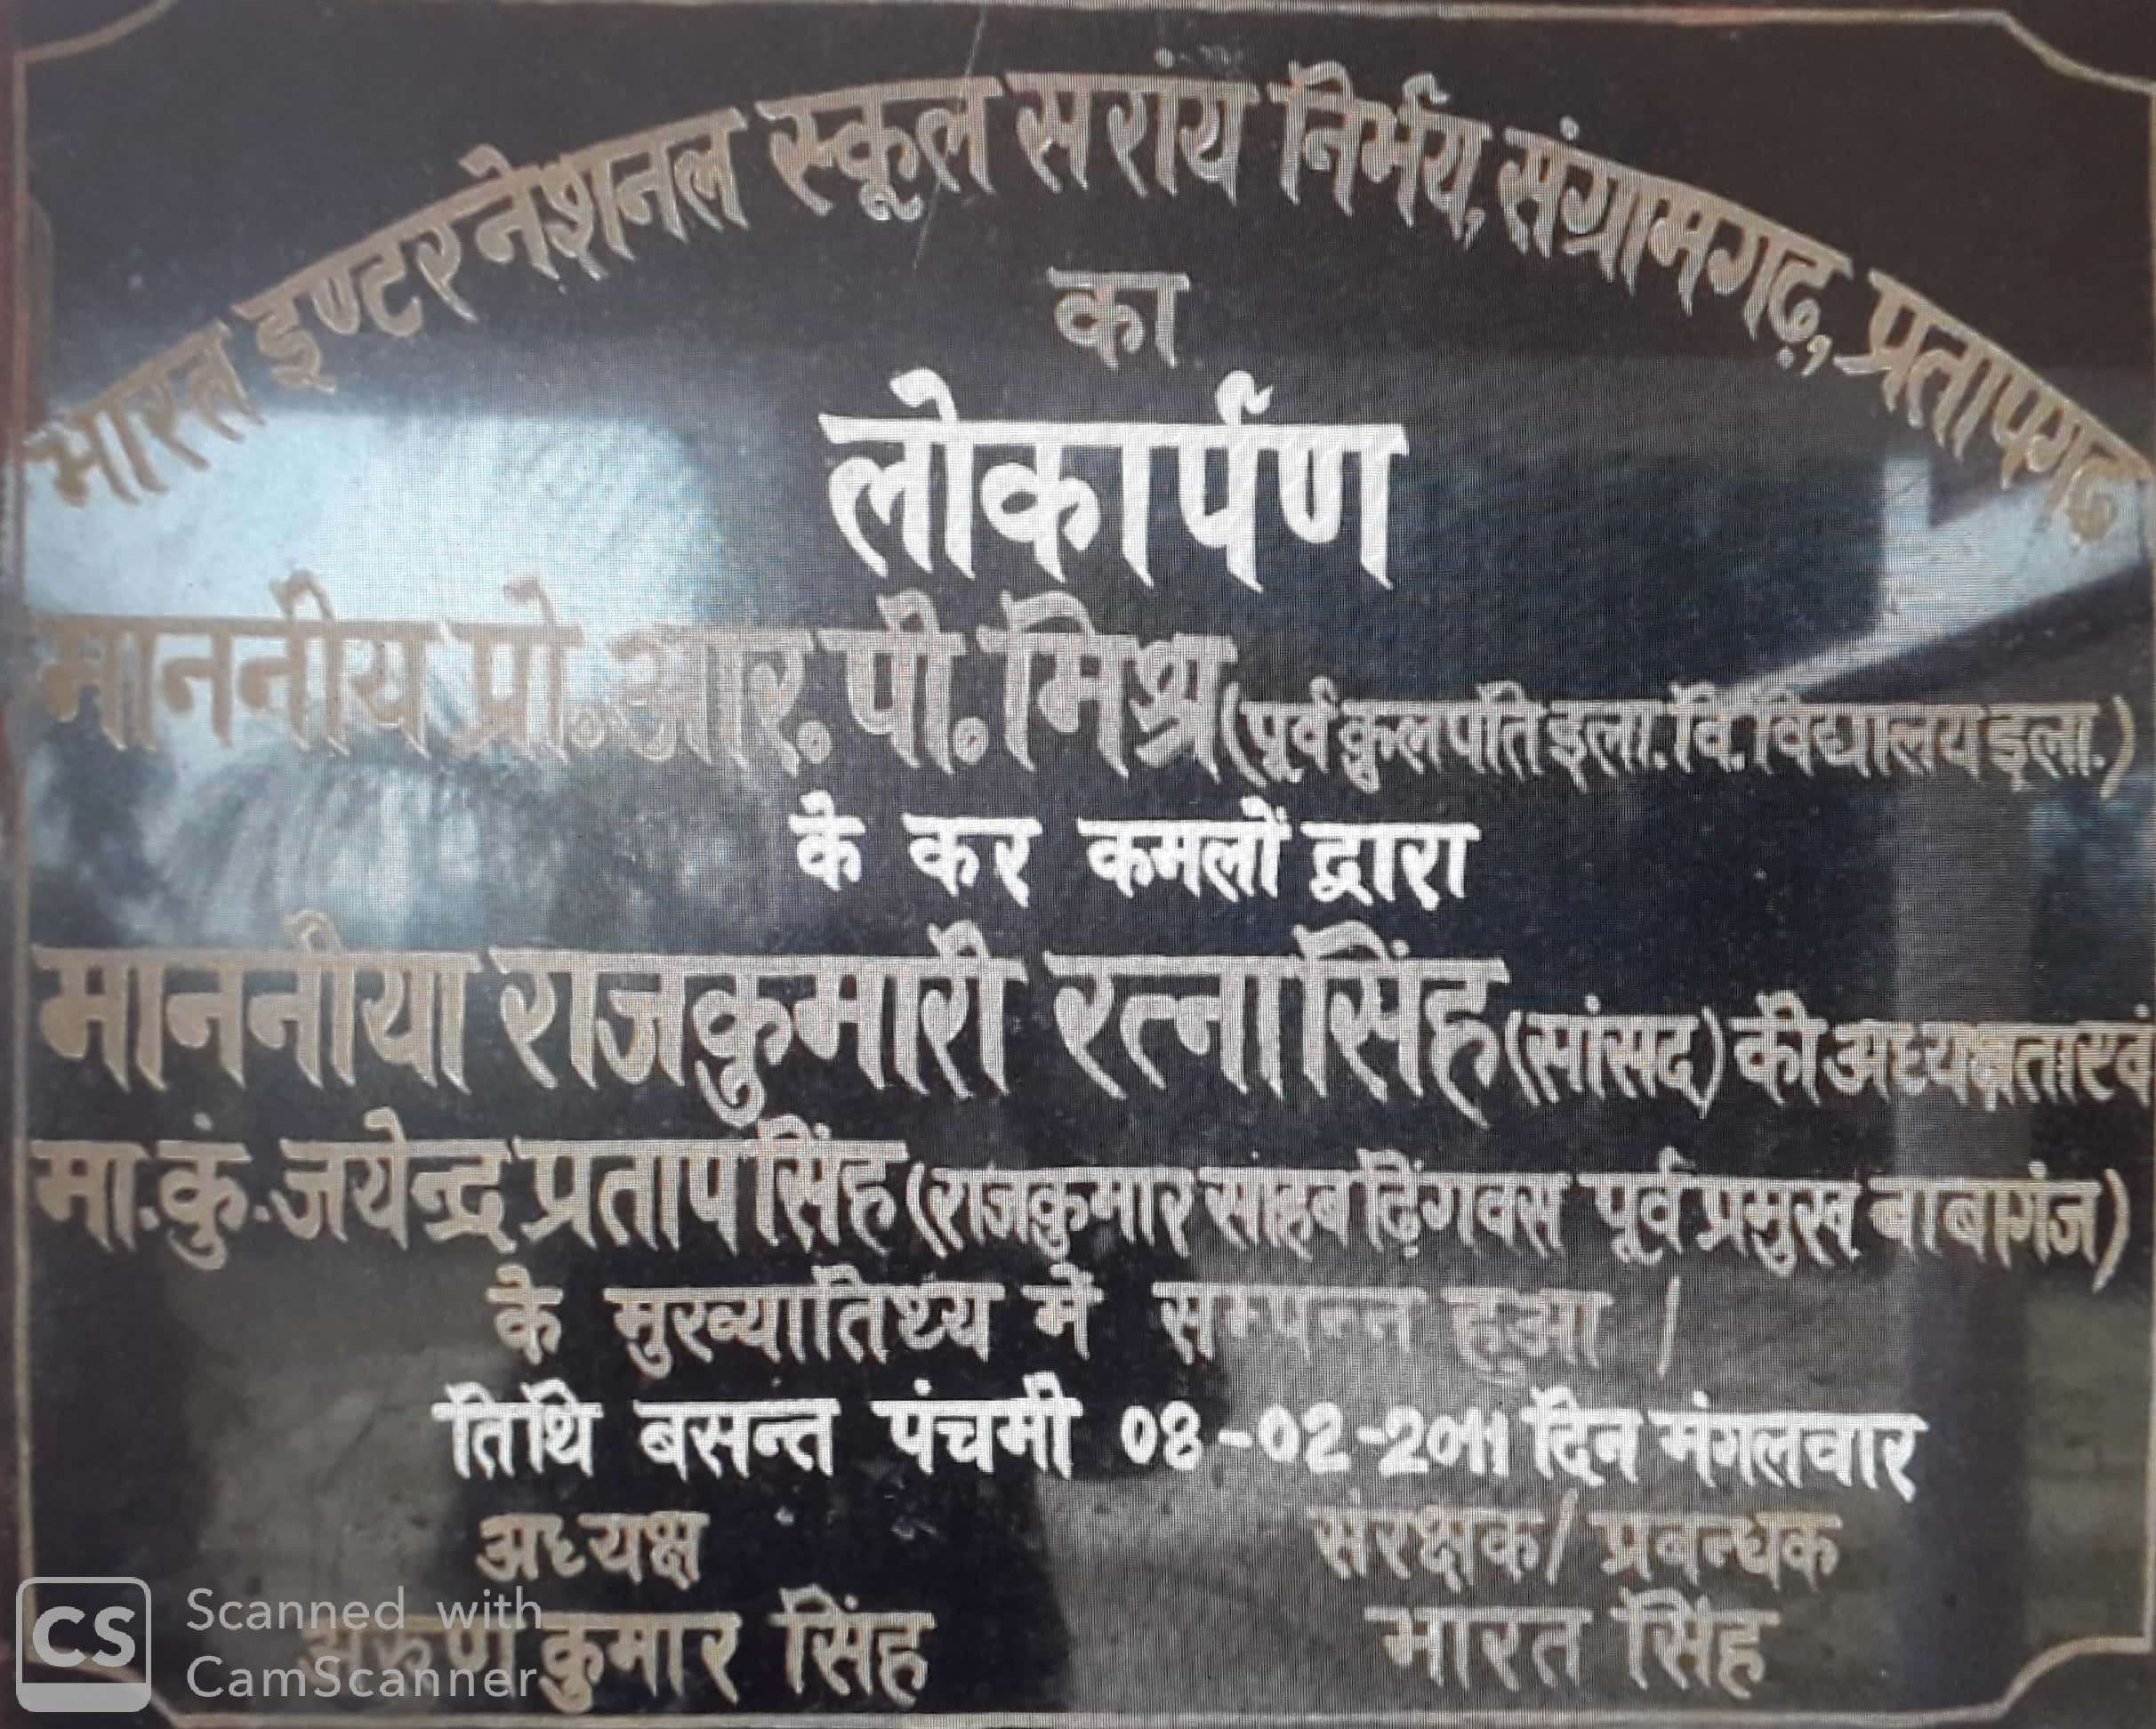 भारत इण्टरनेशनल स्कूल सरांय निर्भय, संग्रामगढ़, प्रतापगढ़
का
लोकार्पण
माननीय प्रो. आर. पी. मिश्र (पूर्व कुलपति इला. वि. विद्यालय इला.)
के कर कमलों द्वारा
माननीया राजकुमारी रत्ना सिंह (सांसद) की अध्यक्षता एवं
मा. कुं. जयेन्द्र प्रताप सिंह (राजकुमार साहब ढ़िंगवस पूर्व प्रमुख बाबागंज)
के मुख्यातिथ्य में सम्पन्न हुआ ।
तिथि बसन्त पंचमी 08-02-2011 दिन मंगलवार
अध्यक्ष संरक्षक/ प्रबन्धक
अरुण कुमार सिंह भारत सिंह
CS Scanned with
CamScanner